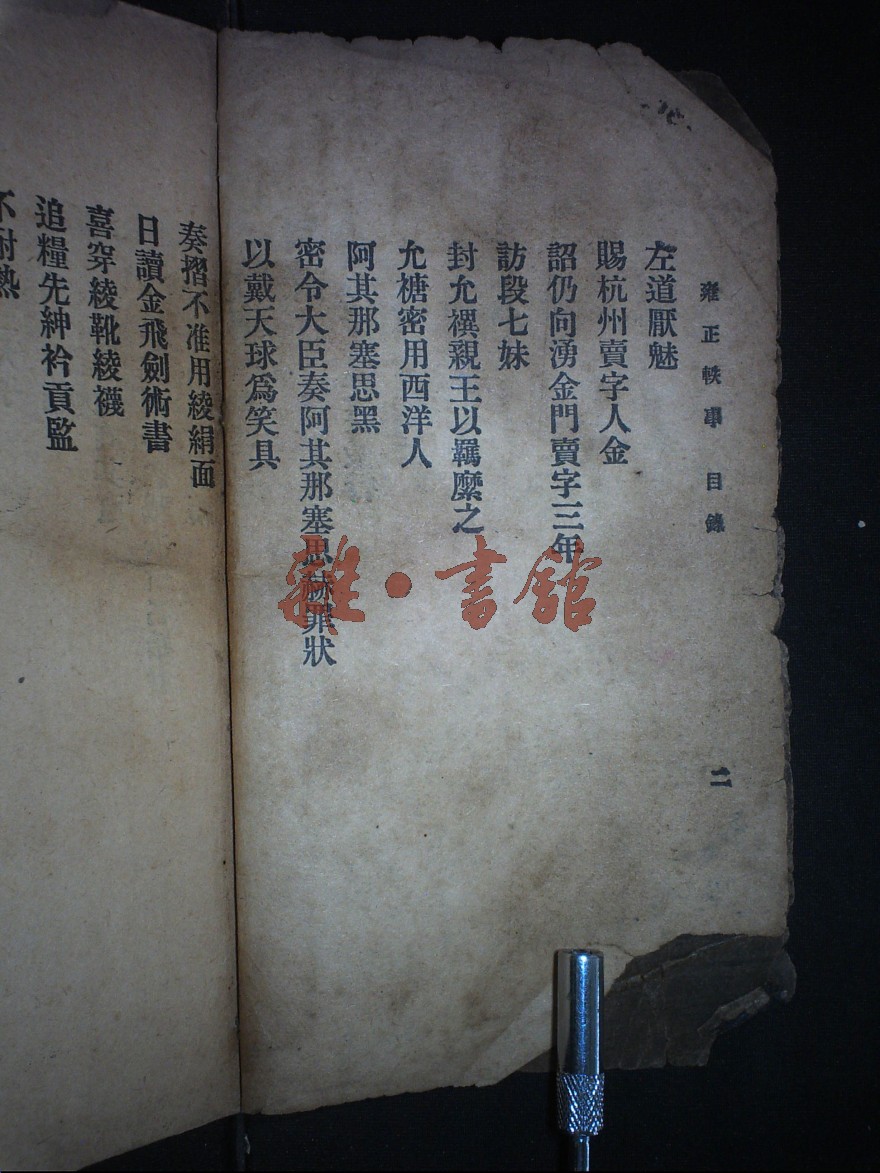 雍正軼事 目錄 二
左道厭魅
賜杭州賣字人金
詔仍向湧金門賣字三年
訪段七妹
封允禩親王以羈縻之
允榶密用西洋人
阿其那塞思黑
密令大臣奏阿其那塞思赫罪狀
以戴天球爲笑具
奏摺不准用綾絹面
日讀金飛劍術書
喜穿綾靴綾襪
追糧先紳衿貢監
不耐熱
雜·書館